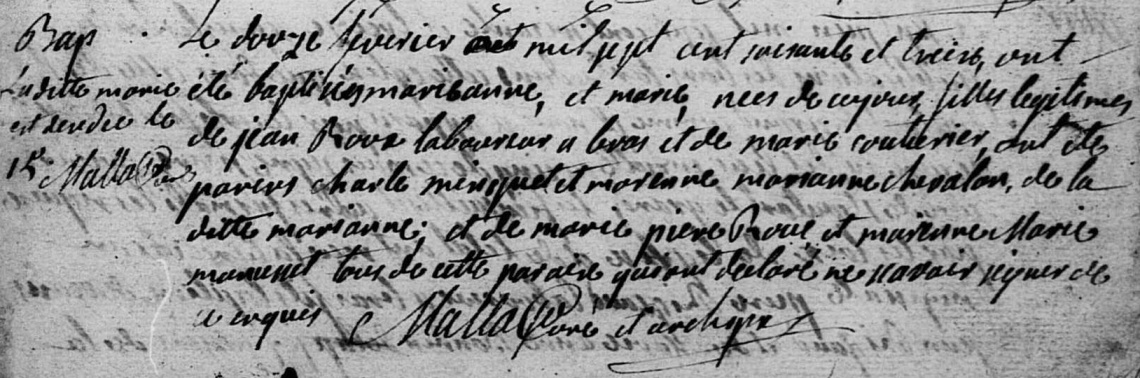 Bap
Laditte marie
est decedée le
15e Malla
Le douze fevrier mil sept cent soisante et treize, ont
été baptisées marieanne, et marie, nees de ce jour, filles legitimes
de jean Roux laboureur a bras et de marie couturier, ont été
parains charle minquet et marenne marianne chevalon, de la
ditte marianne; et de marie piere Roux et marenne Marie
tous de cette paroisse qui ont declaré ne savoir signer de
ce enquis Malla Curé et archipr